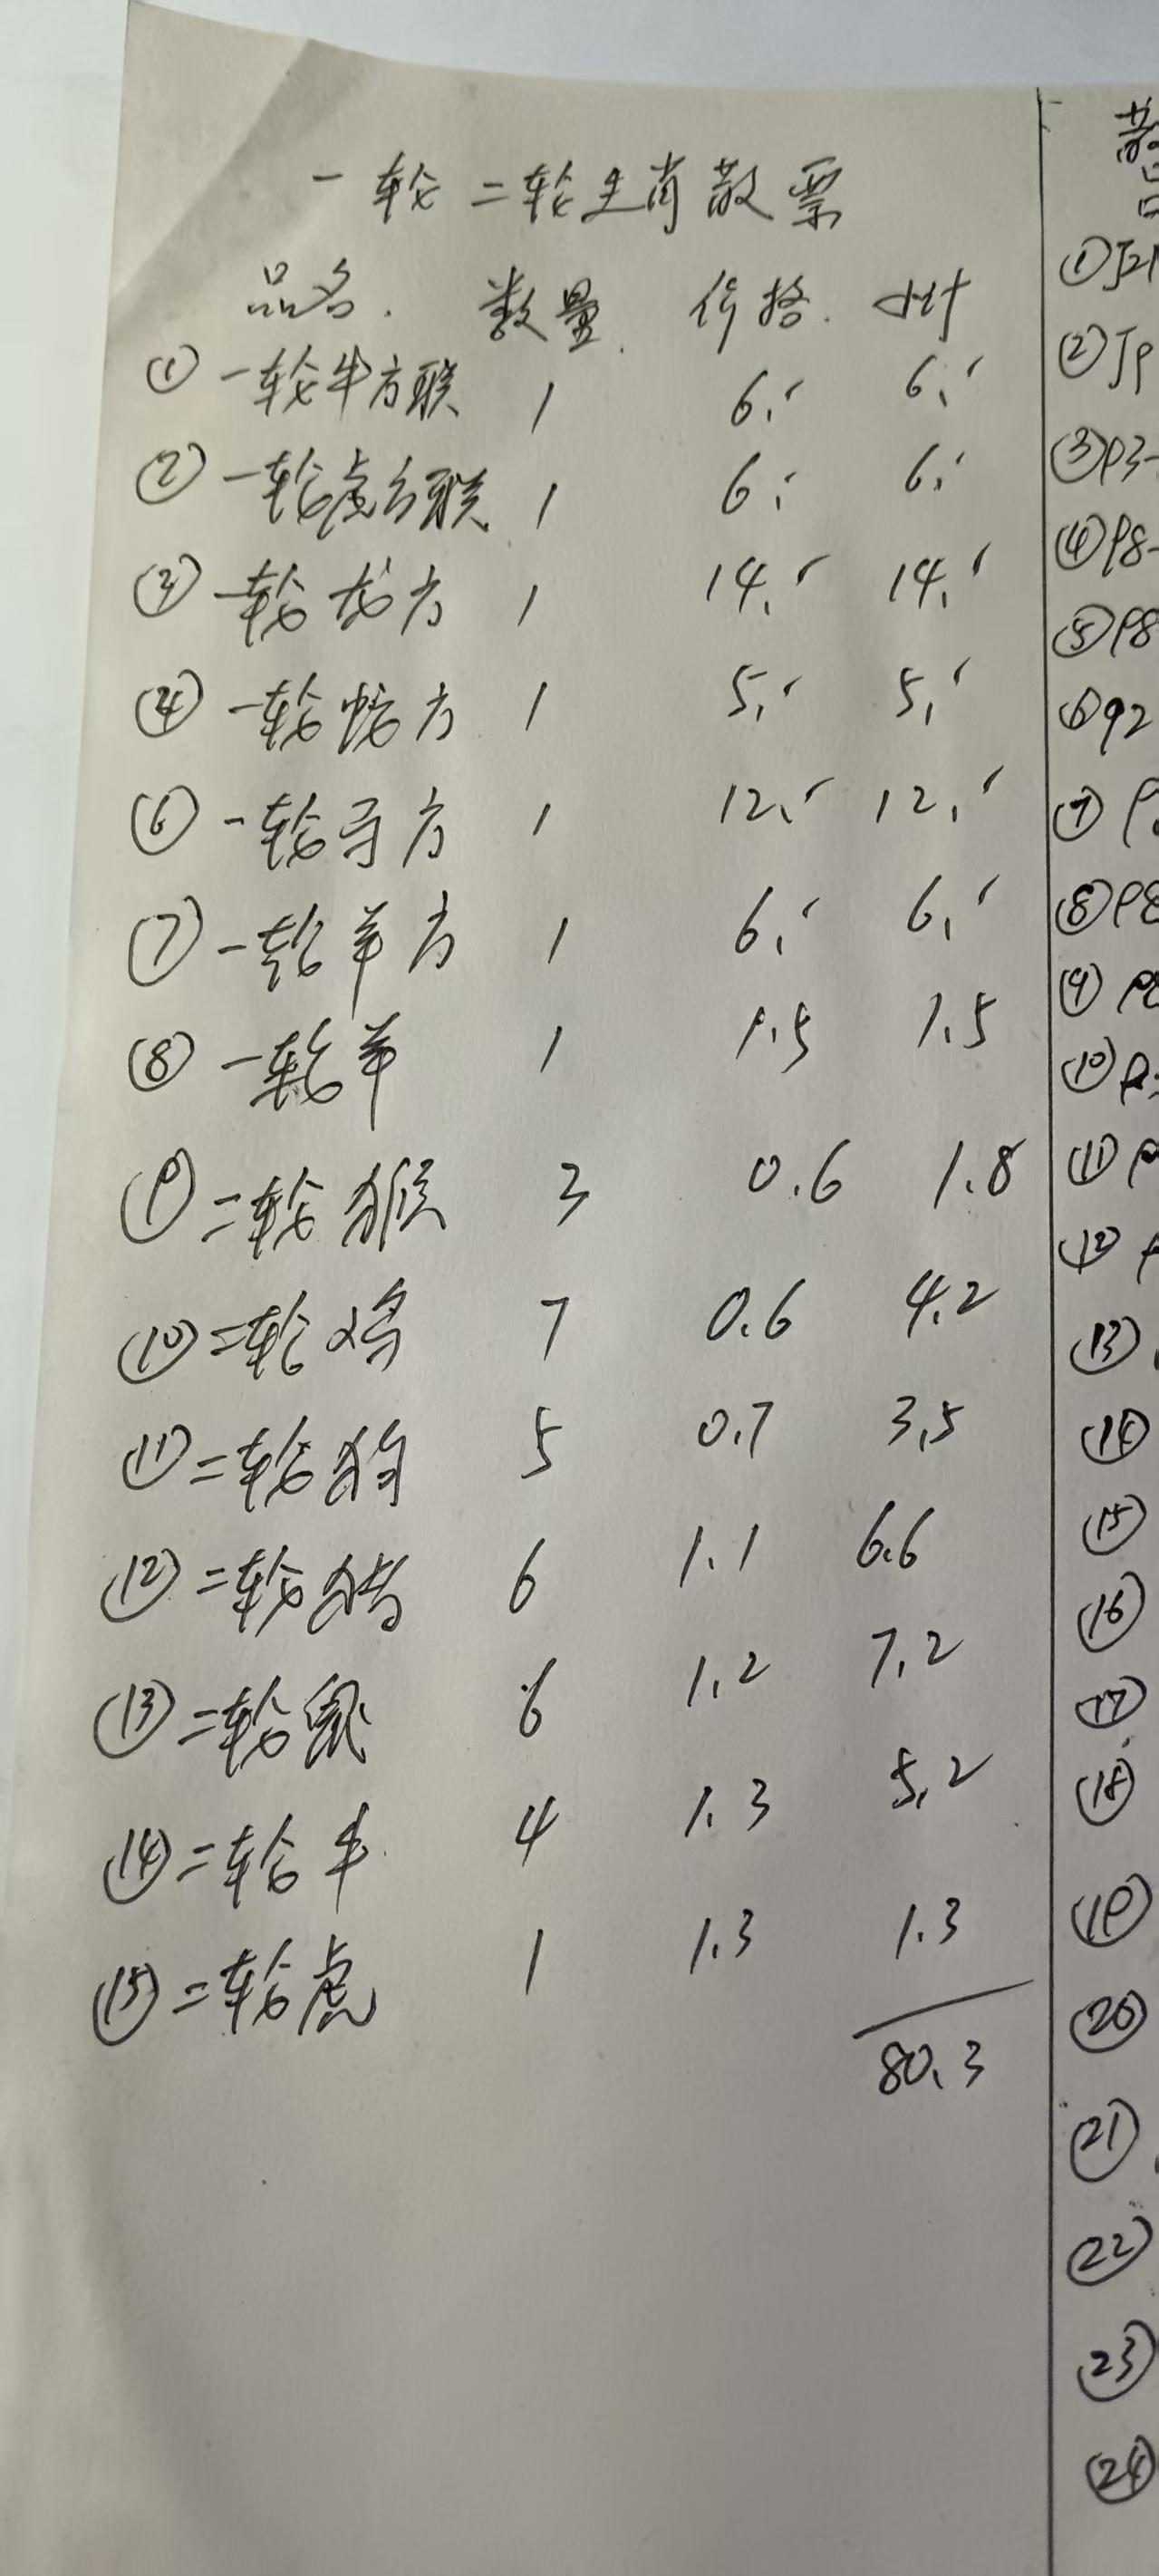 一轮二轮生肖散票
品名. 数量. 价格. 小计
① 一轮牛方联 1 6.- 6.-
② 一轮虎方联 1 6.- 6.-
③ 一轮龙方 1 14.- 14.-
④ 一轮蛇方 1 5.- 5.-
⑥ 一轮马方 1 12.- 12.-
⑦ 一轮羊方 1 6.- 6.-
⑧ 一轮羊 1 1.5 1.5
⑨ 二轮猴 3 0.6 1.8
⑩ 二轮鸡 7 0.6 4.2
⑪ 二轮狗 5 0.7 3.5
⑫ 二轮猪 6 1.1 6.6
⑬ 二轮鼠 6 1.2 7.2
⑭ 二轮牛 4 1.3 5.2
⑮ 二轮虎 1 1.3 1.3
80.3
①J21
②J9
③P3-
④P8-
⑤P8
⑥92
⑦
⑧P8
⑨
⑩
⑪
⑫
⑬
⑭
⑮
⑯
⑰
⑱
⑲
⑳
㉑
㉒
㉓
㉔